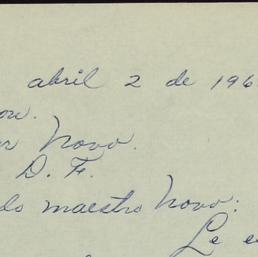 abril 2 de 196
or Novo.
D. F.
do maestro Novo:
Le e